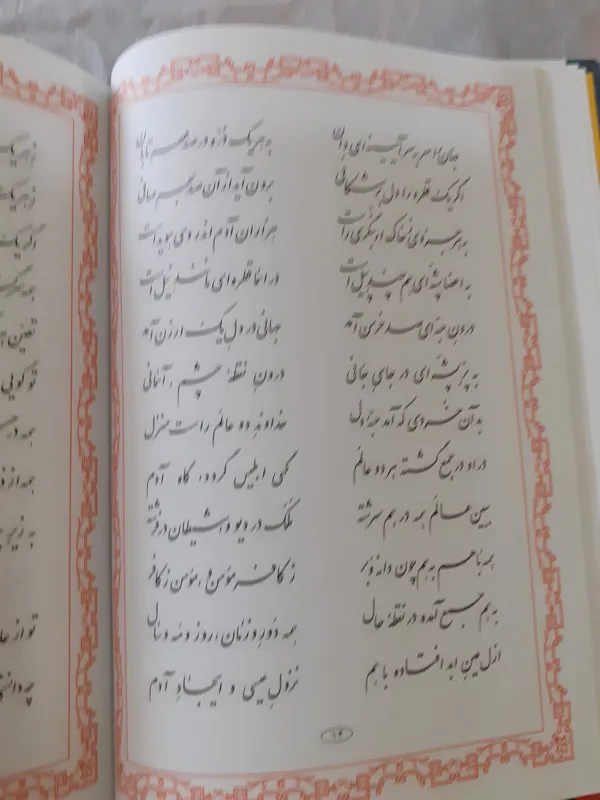 جهان را سر به سر آیینه‌ای دان به هر یک ذره در صد مهر تابان
اگر یک قطره را دل برشکافی برون آید از آن صد بحر صافی
به هر جزوی ز خاک ار بنگری راست هزاران آدم اندر وی هویداست
به اعضا پشه‌ای هم چند پیل است در اسما قطره‌ای مانند نیل است
درون حبه‌ای صد خرمن آمد جهانی در دل یک ارزن آمد
به پر پشه‌ای در جای جانی درون نقطهٔ چشم، آسمانی
بدان خردی که آمد حبهٔ دل خداوند دو عالم راست منزل
در او در جمع گشته هر دو عالم گهی ابلیس گردد، گاه آدم
ببین عالم همه در هم سرشته ملک در دیو و شیطان در فرشته
همه با هم به هم چون دانه و بر ز کافر مؤمن و، مؤمن ز کافر
به هم جمع آمده در نقطهٔ حال همه دور و زمان، روز و مه و سال
ازل عین ابد افتاده با هم نزول عیسی و ایجاد آدم
۱۶